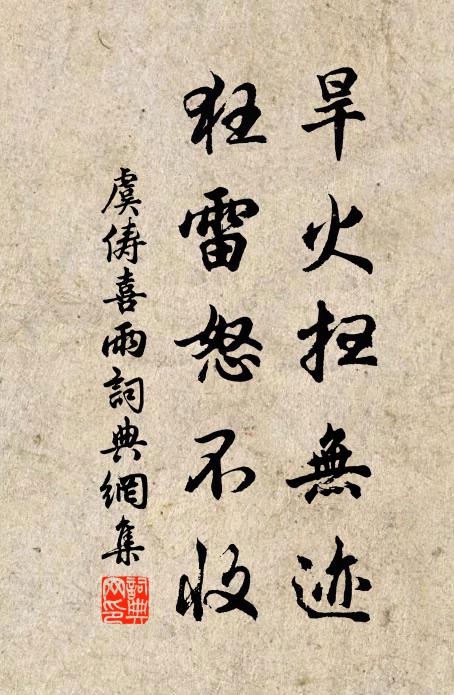 旱火扫無迹
狂雷怒不收
虞俦喜雨詞典網集
詞典網印